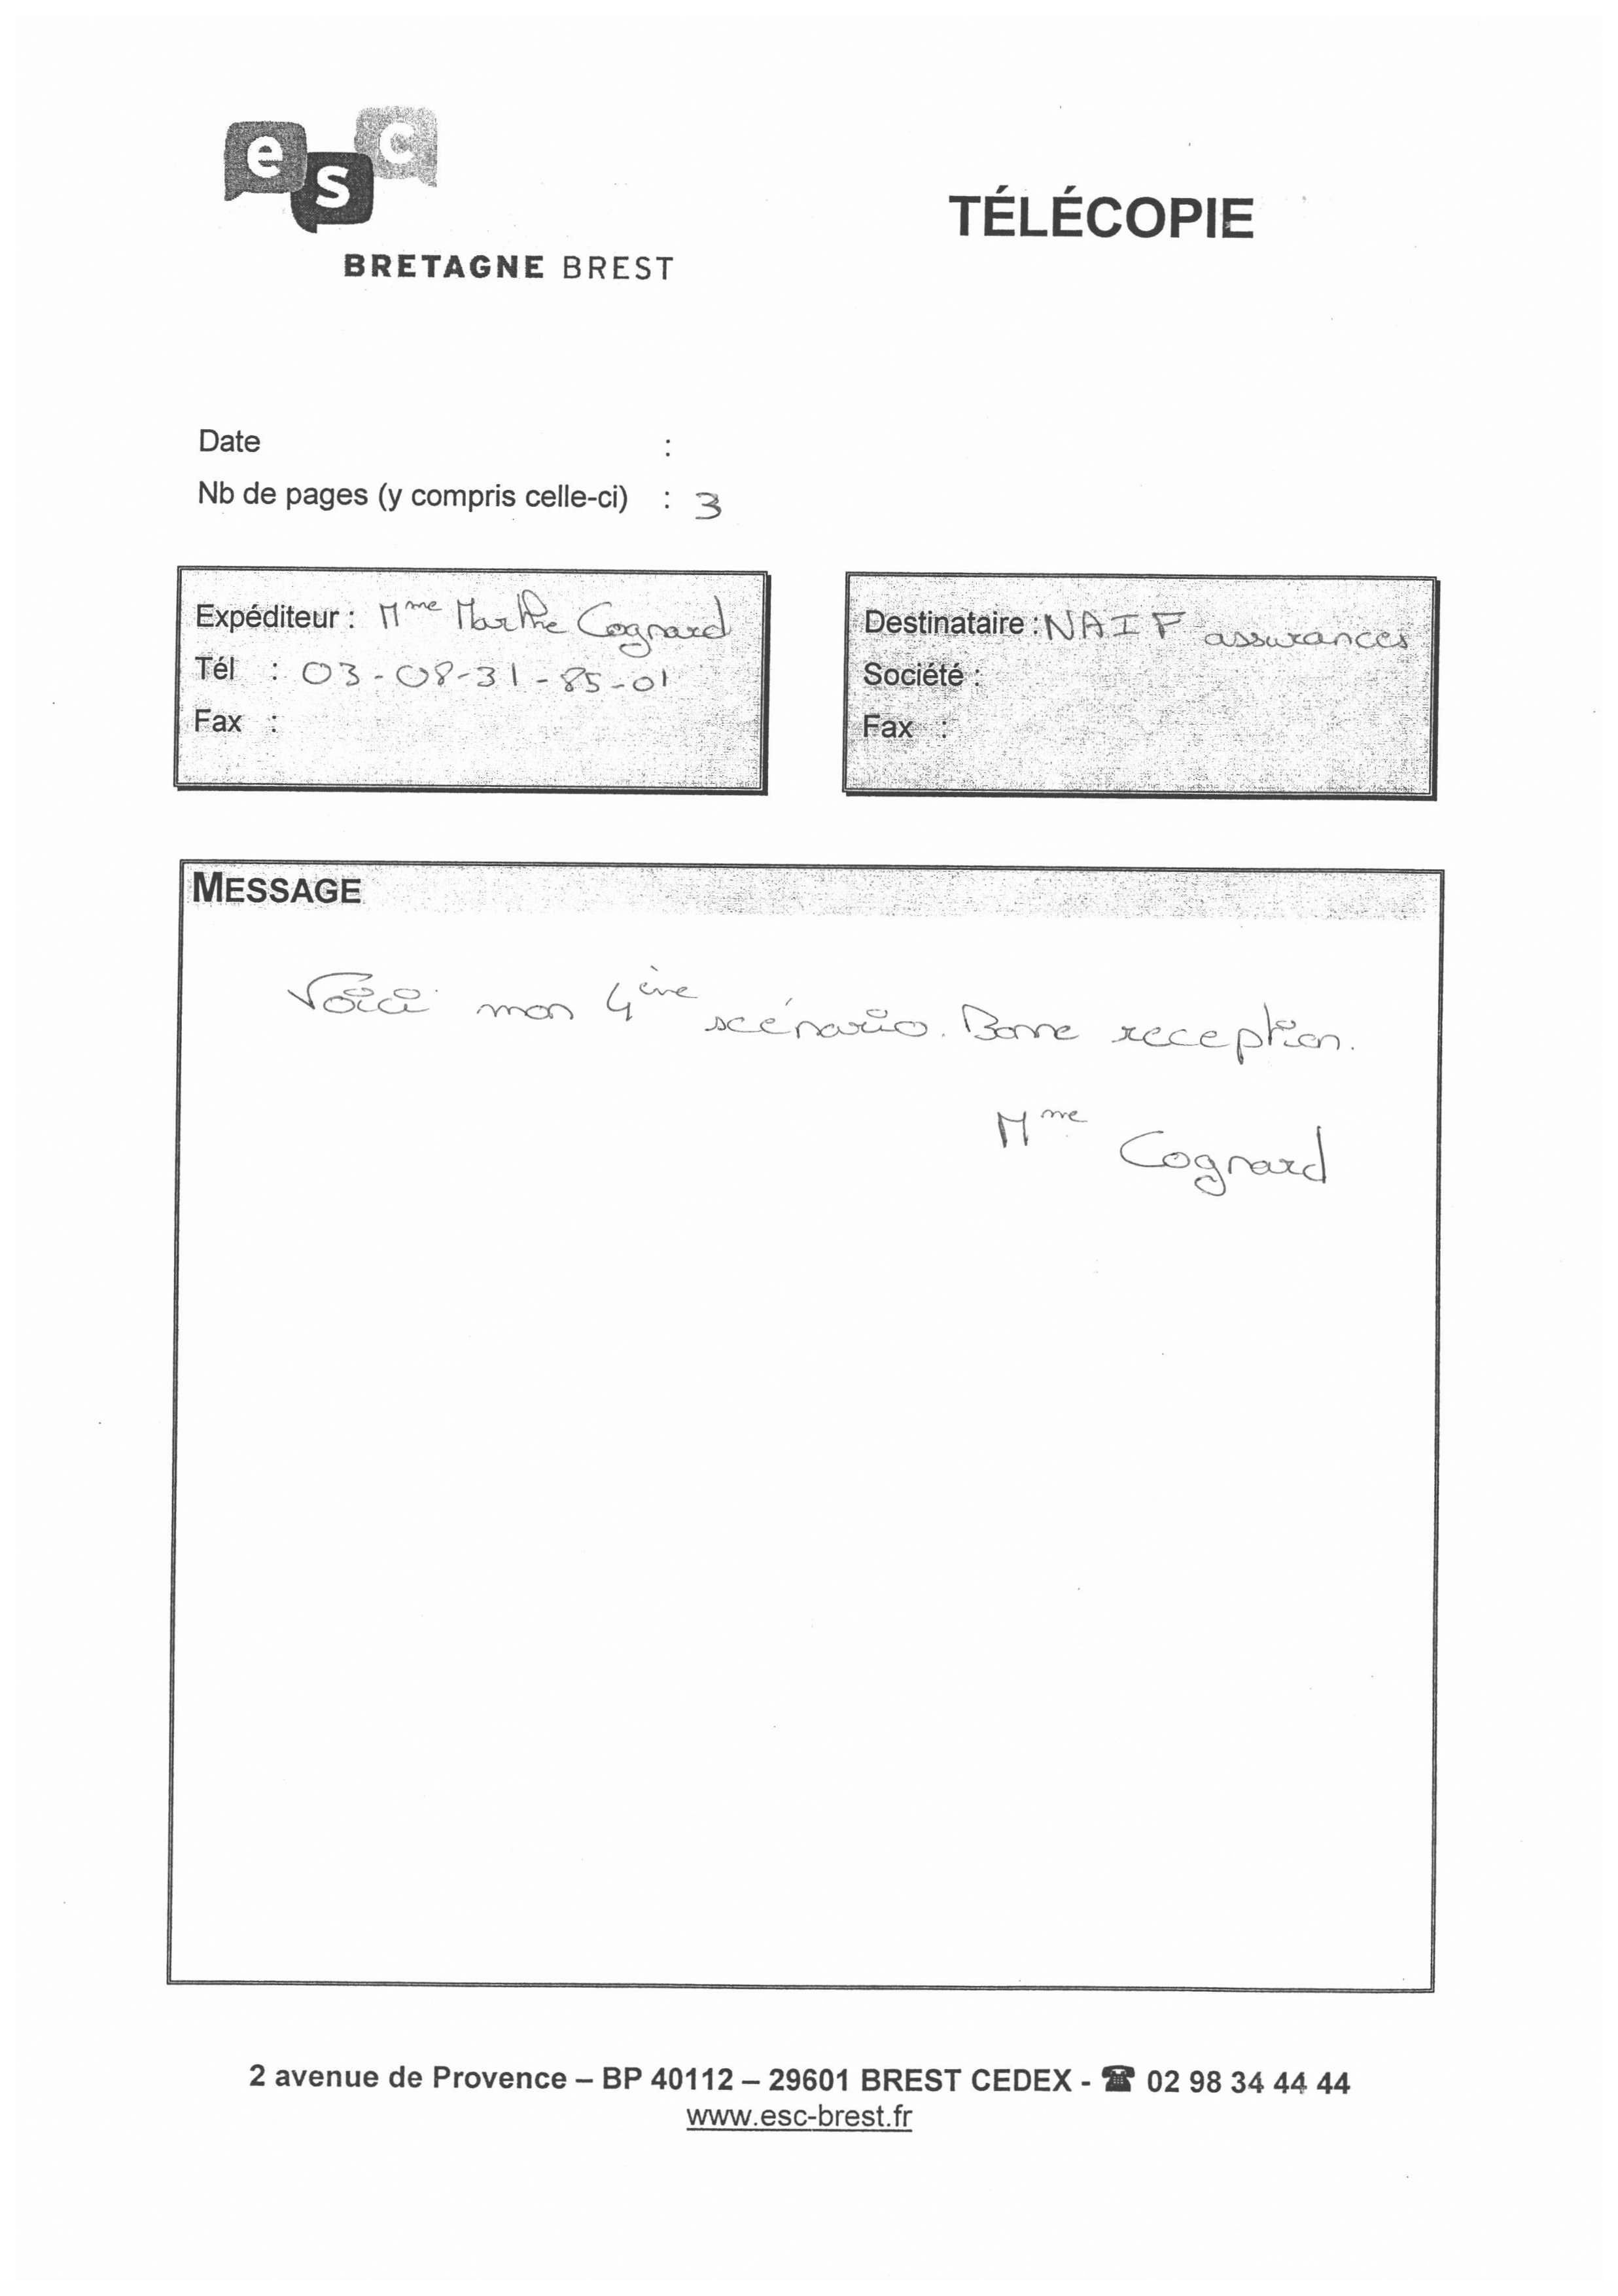 e s c
BRETAGNE BREST
TÉLÉCOPIE
Date :
Nb de pages (y compris celle-ci) : 3
Expéditeur : Mme Marthe Cognard
Tél : 03-08-31-85-01
Fax :
Destinataire : NAIF assurances
Société :
Fax :
MESSAGE
Voici mon 4ème scénario. Bonne reception.
Mme Cognard
2 avenue de Provence – BP 40112 – 29601 BREST CEDEX - ☎ 02 98 34 44 44
www.esc-brest.fr